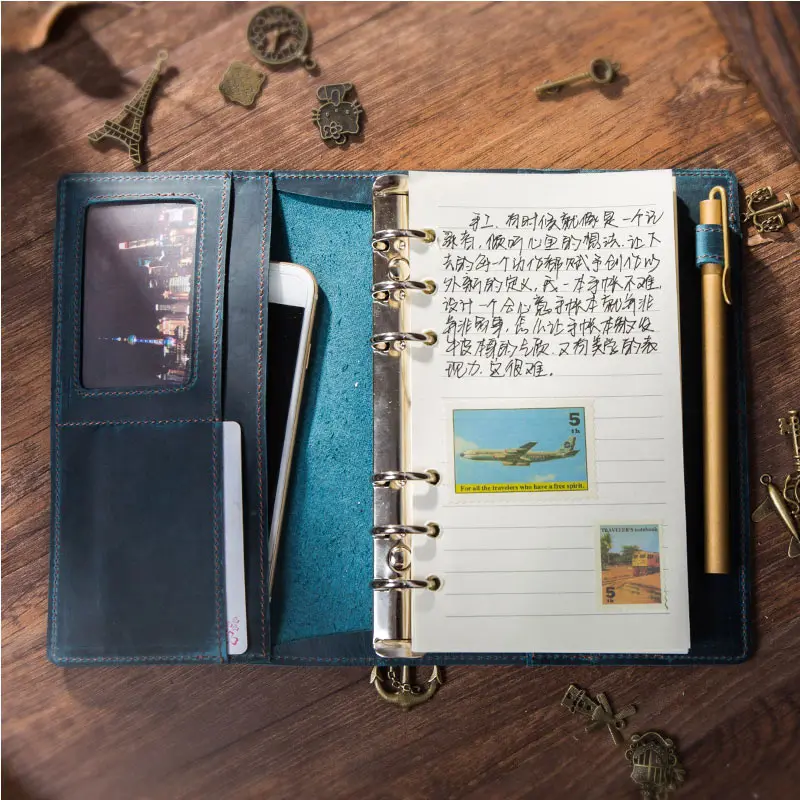 手工,有时候就像是一个记
录者,心里的想法,让下
的每个都赋予创作以
外新的定义,一本手帐不难,
设计一个手帐本就
易事,怎么让手帐本散发
的气质,又有美学的表
现力,它很难。
5
th
For all the travelers who have a free spirit.
TRAVELER'S notebook
5
th